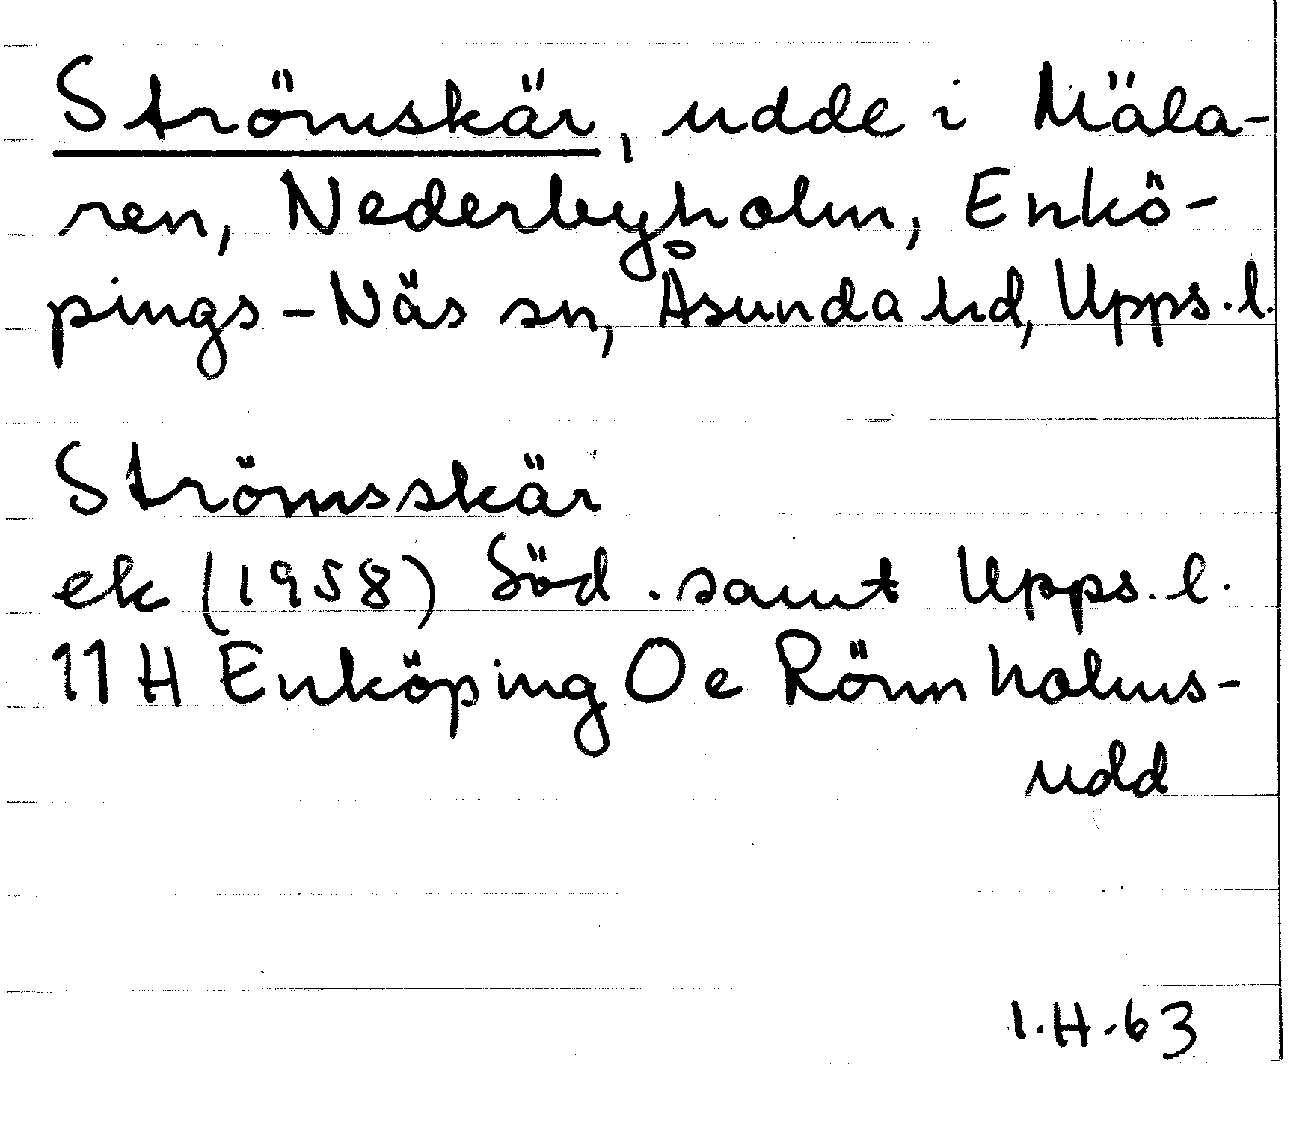 Strömskär, udde i Mäla-
ren, Nederbyholm, Enkö-
pings-Näs sn, Åsunda hd, Upps. l.
Strömsskär
ek (1958) Söd. samt Upps. l.
11H Enköping Oe Rönnholms-
udd
I.H.63